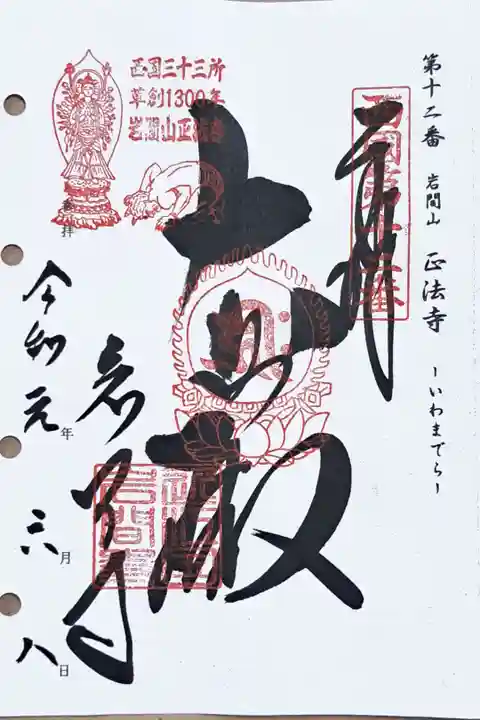 第十二番 岩間山 正法寺 －いわまでら－
奉拝
西国第十二番
大悲殿
西国三十三所
草創1300年
岩間山正法寺
岩間寺
令和元年六月八日